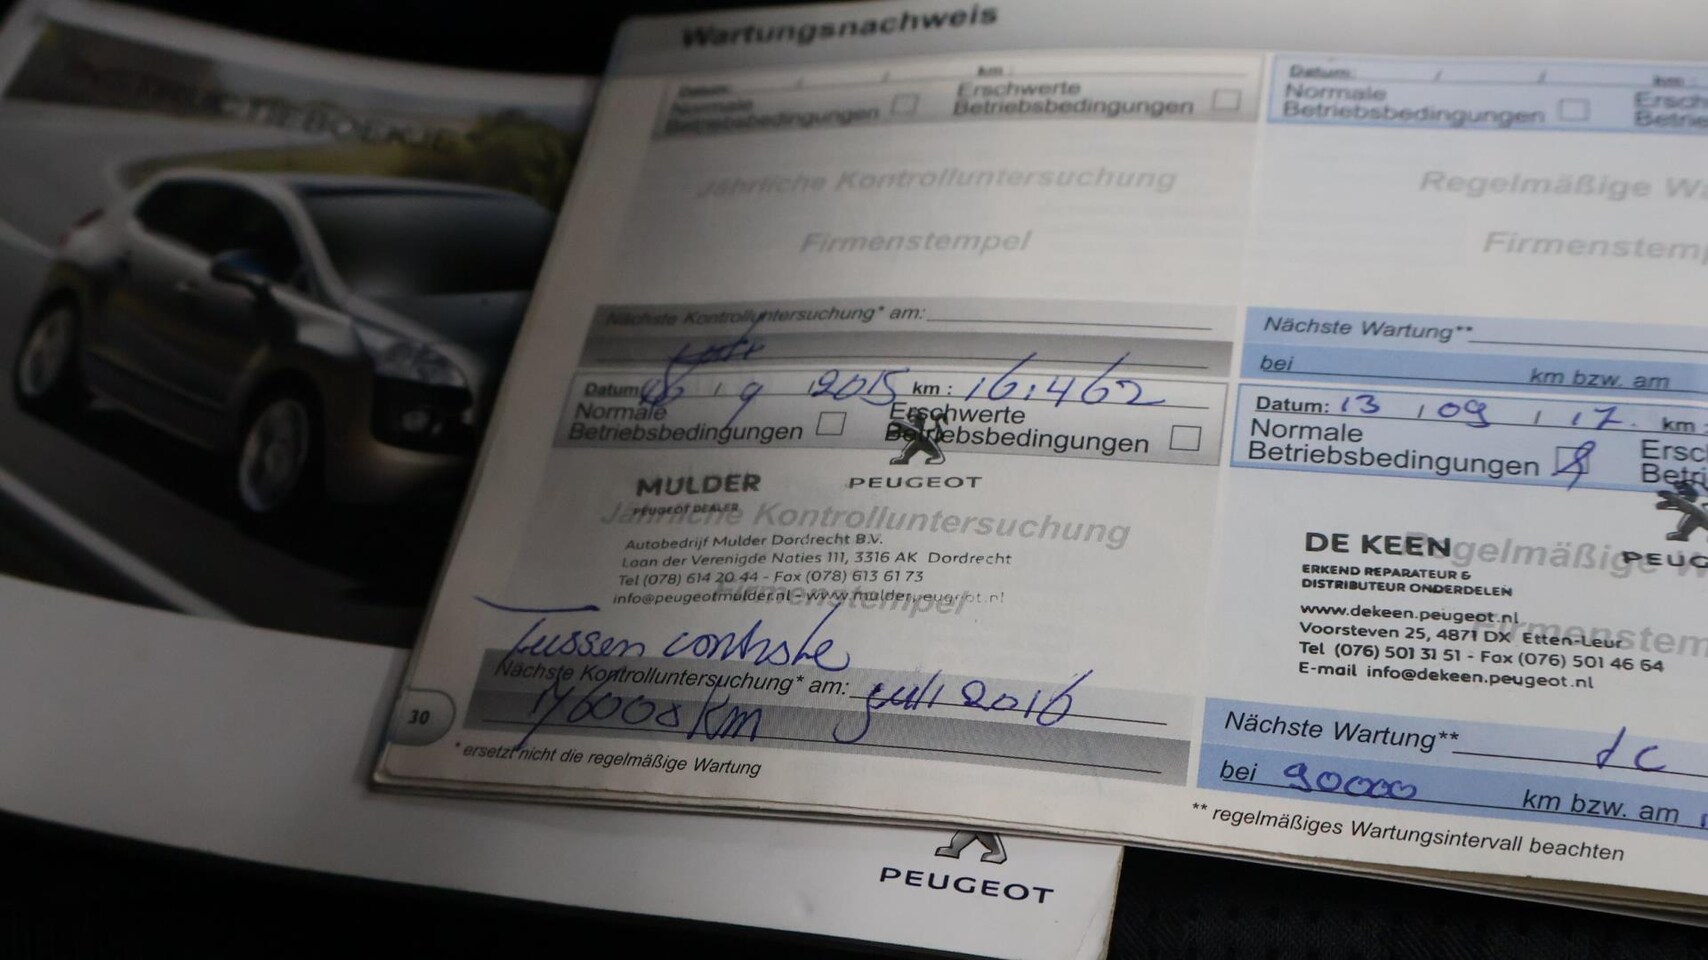 INSTRUCTIEBOEKJE
PEUGEOT
Wartungsnachweis
Datum: / / km :
Normale Betriebsbedingungen
Erschwerte Betriebsbedingungen
Jährliche Kontrolluntersuchung
Firmenstempel
Nächste Kontrolluntersuchung* am:
Datum: 16 / 9 2015 km : 16.462
Normale Betriebsbedingungen
Erschwerte Betriebsbedingungen
MULDER
PEUGEOT DEALER
PEUGEOT
Jährliche Kontrolluntersuchung
Autobedrijf Mulder Dordrecht B.V.
Laan der Verenigde Naties 111, 3316 AK Dordrecht
Tel (078) 614 20 44 - Fax (078) 613 61 73
info@peugeotmulder.nl - www.mulder.peugeot.nl
Firmenstempel
Tussen controle
Nächste Kontrolluntersuchung* am: juli 2016
km
30
* ersetzt nicht die regelmäßige Wartung
Datum: / / km :
Normale Betriebsbedingungen
Regelmäßige
Nächste Wartung**
bei km bzw. am
Datum: 13 / 09 / 17. km
Normale Betriebsbedingungen
DE KEEN
Regelmäßige
ERKEND REPARATEUR &
DISTRIBUTEUR ONDERDELEN
www.dekeen.peugeot.nl
Voorsteven 25, 4871 DX Etten-Leur
Tel (076) 501 31 51 - Fax (076) 501 46 64
E-mail info@dekeen.peugeot.nl
Nächste Wartung**
bei 90000 km bzw. am
** regelmäßiges Wartungsintervall beachten